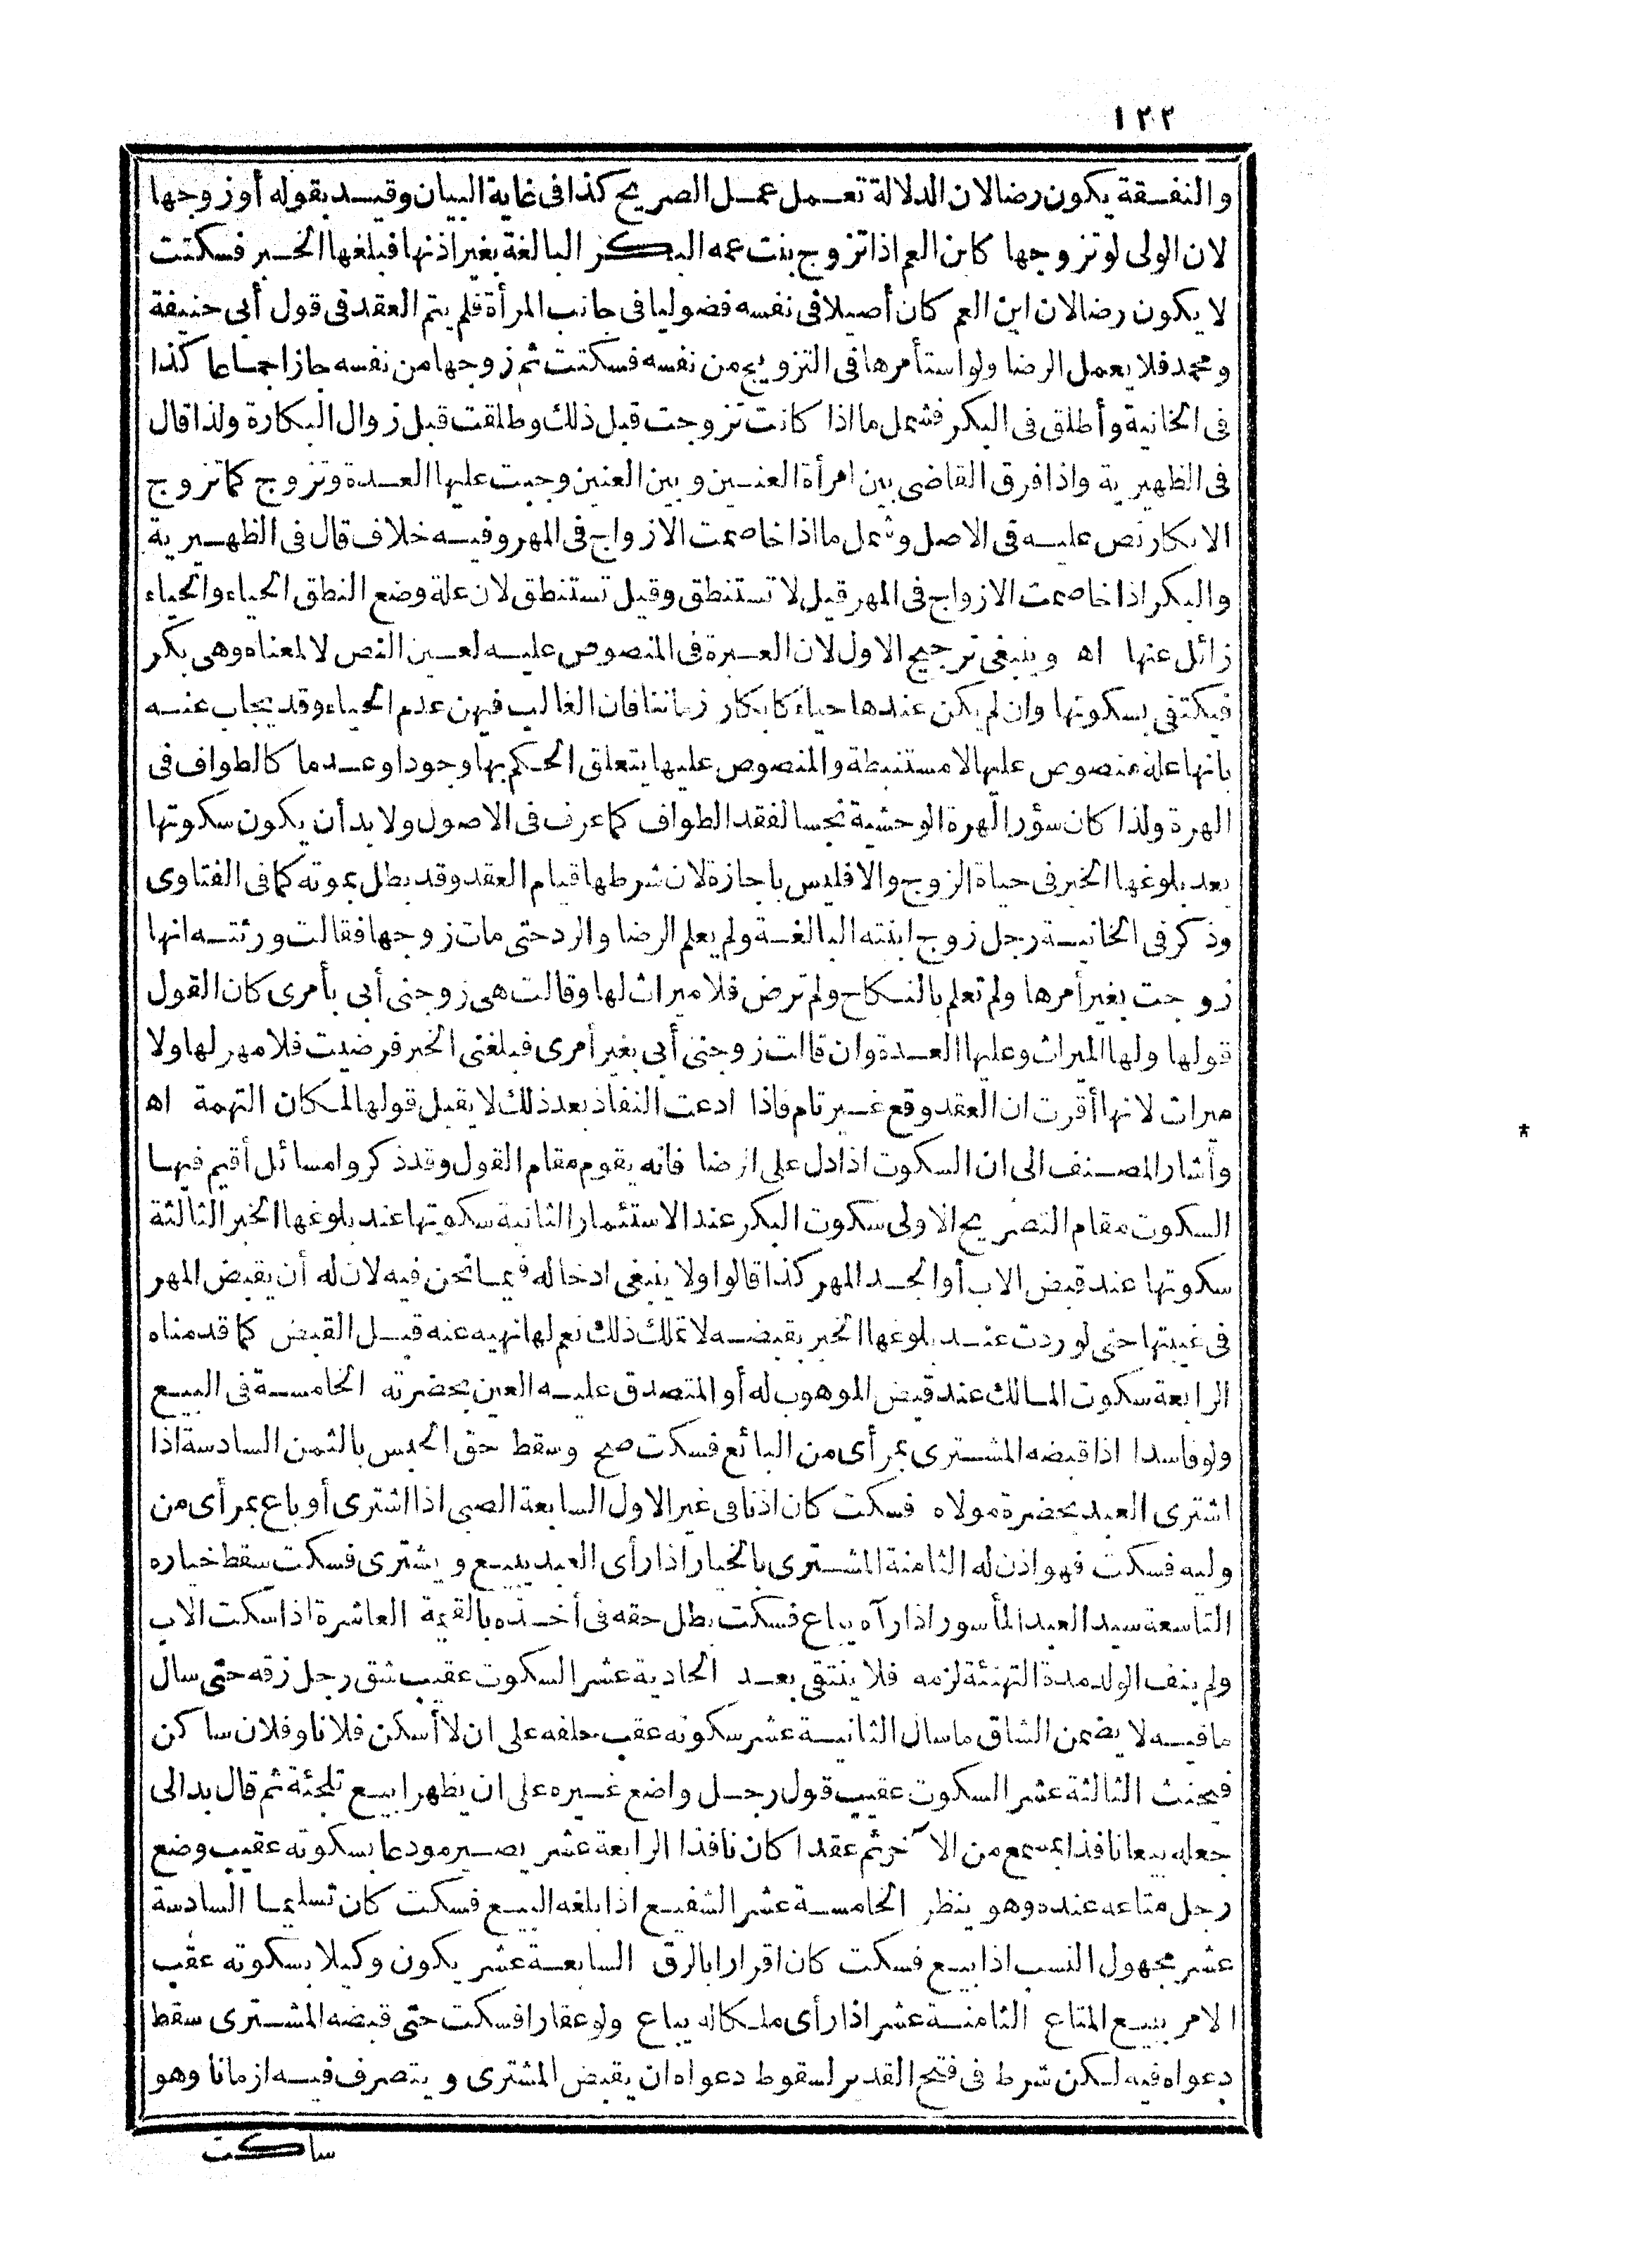 ١٢٢
والنفقة يكون رضا لان الدلالة تعمل عمل الصريح كذا فى غاية البيان وقيد بقوله أو زوجها
لان الولى لو تزوجها كابن العم اذا تزوج بنت عمه البكر البالغة بغير اذنها فبلغها الخبر فسكتت
لا يكون رضا لان ابن العم كان أصيلا فى نفسه فضوليا فى جانب المرأة فلم يتم العقد فى قول أبى حنيفة
ومحمد فلا يعمل الرضا ولو استأمرها فى التزويج من نفسه فسكتت ثم زوجها من نفسه جاز اجماعا كذا
فى الخانية وأطلق فى البكر فشمل ما اذا كانت تزوجت قبل ذلك وطلقت قبل زوال البكارة ولذا قال
فى الظهيرية واذا فرق القاضى بين امرأة العنين وبين العنين وجبت عليها العدة وتزوج كما تزوج
الابكار نص عليه فى الاصل وشمل ما اذا خاصمت الازواج فى المهر وفيه خلاف قال فى الظهيرية
والبكر اذا خاصمت الازواج فى المهر قيل لا تستنطق وقيل تستنطق لان علة وضع النطق الحياء والحياء
زائل عنها اه وينبغى ترجيح الاول لان العبرة فى المنصوص عليه لعين النص لا لمعناه وهى بكر
فيكتفى بسكوتها وان لم يكن عندها حياء كابكار زماننا فان الغالب فيهن عدم الحياء وقد يجاب عنه
بانها علة منصوص عليها لا مستنبطة والمنصوص عليها يتعلق الحكم بها وجودا وعدما كالطواف فى
الهرة ولذا كان سؤر الهرة الوحشية نجسا لفقد الطواف كما عرف فى الاصول ولا بد أن يكون سكوتها
بعد بلوغها الخبر فى حياة الزوج والا فليس باجازة لان شرطها قيام العقد وقد بطل بموته كما فى الفتاوى
وذكر فى الخانية رجل زوج ابنته البالغة ولم يعلم الرضا والرد حتى مات زوجها فقالت ورثته انها
زوجت بغير أمرها ولم تعلم بالنكاح ولم ترض فلا ميراث لها وقالت هى زوجنى أبى بأمرى كان القول
قولها ولها الميراث وعليها العدة وان قالت زوجنى أبى بغير أمرى فبلغنى الخبر فرضيت فلا مهر لها ولا
ميراث لانها أقرت ان العقد وقع غير تام فاذا ادعت النفاذ بعد ذلك لا يقبل قولها لمكان التهمة اه
وأشار المصنف الى ان السكوت اذا دل على الرضا فانه يقوم مقام القول وقد ذكروا مسائل أقيم فيها
السكوت مقام التصريح الاولى سكوت البكر عند الاستئمار الثانية سكوتها عند بلوغها الخبر الثالثة
سكوتها عند قبض الاب أو الجد المهر كذا قالوا ولا ينبغى ادخاله فيما نحن فيه لان له أن يقبض المهر
فى غيبتها حتى لو ردت عند بلوغها الخبر بقبضه لا تملك ذلك نعم لها نهيه عنه قبل القبض كما قدمناه
الرابعة سكوت المالك عند قبض الموهوب له أو المتصدق عليه العين بحضرته الخامسة فى البيع
ولو فاسدا اذا قبضه المشترى بمرأى من البائع فسكت صح وسقط حق الحبس بالثمن السادسة اذا
اشترى العبد بحضرة مولاه فسكت كان اذنا فى غير الاول السابعة الصبى اذا اشترى أو باع بمرأى من
وليه فسكت فهو اذن له الثامنة المشترى بالخيار اذا رأى العبد يبيع ويشترى فسكت سقط خياره
التاسعة سيد العبد المأسور اذا رآه يباع فسكت بطل حقه فى أخذه بالقيمة العاشرة اذا سكت الاب
ولم ينف الولد مدة التهنئة لزمه فلا ينتفى بعد الحادية عشر السكوت عقيب شق رجل زقه حتى سال
ما فيه لا يضمن الشاق ما سال الثانية عشر سكوته عقب حلفه على ان لا أسكن فلانا وفلان ساكن
فيحنث الثالثة عشر السكوت عقيب قول رجل واضع غيره على ان يظهرا بيع تلجئة ثم قال بدالى
جعله بيعا نافذا بمسمع من الآخر ثم عقدا كان نافذا الرابعة عشر يصير مودعا بسكوته عقيب وضع
رجل متاعه عنده وهو ينظر الخامسة عشر الشفيع اذا بلغه البيع فسكت كان تسليما السادسة
عشر مجهول النسب اذا بيع فسكت كان اقرارا بالرق السابعة عشر يكون وكيلا بسكوته عقب
الامر ببيع المتاع الثامنة عشر اذا رأى ملكا له يباع ولو عقارا فسكت حتى قبضه المشترى سقط
دعواه فيه لكن شرط فى فتح القدير لسقوط دعواه ان يقبض المشترى ويتصرف فيه ازمانا وهو
ساكت